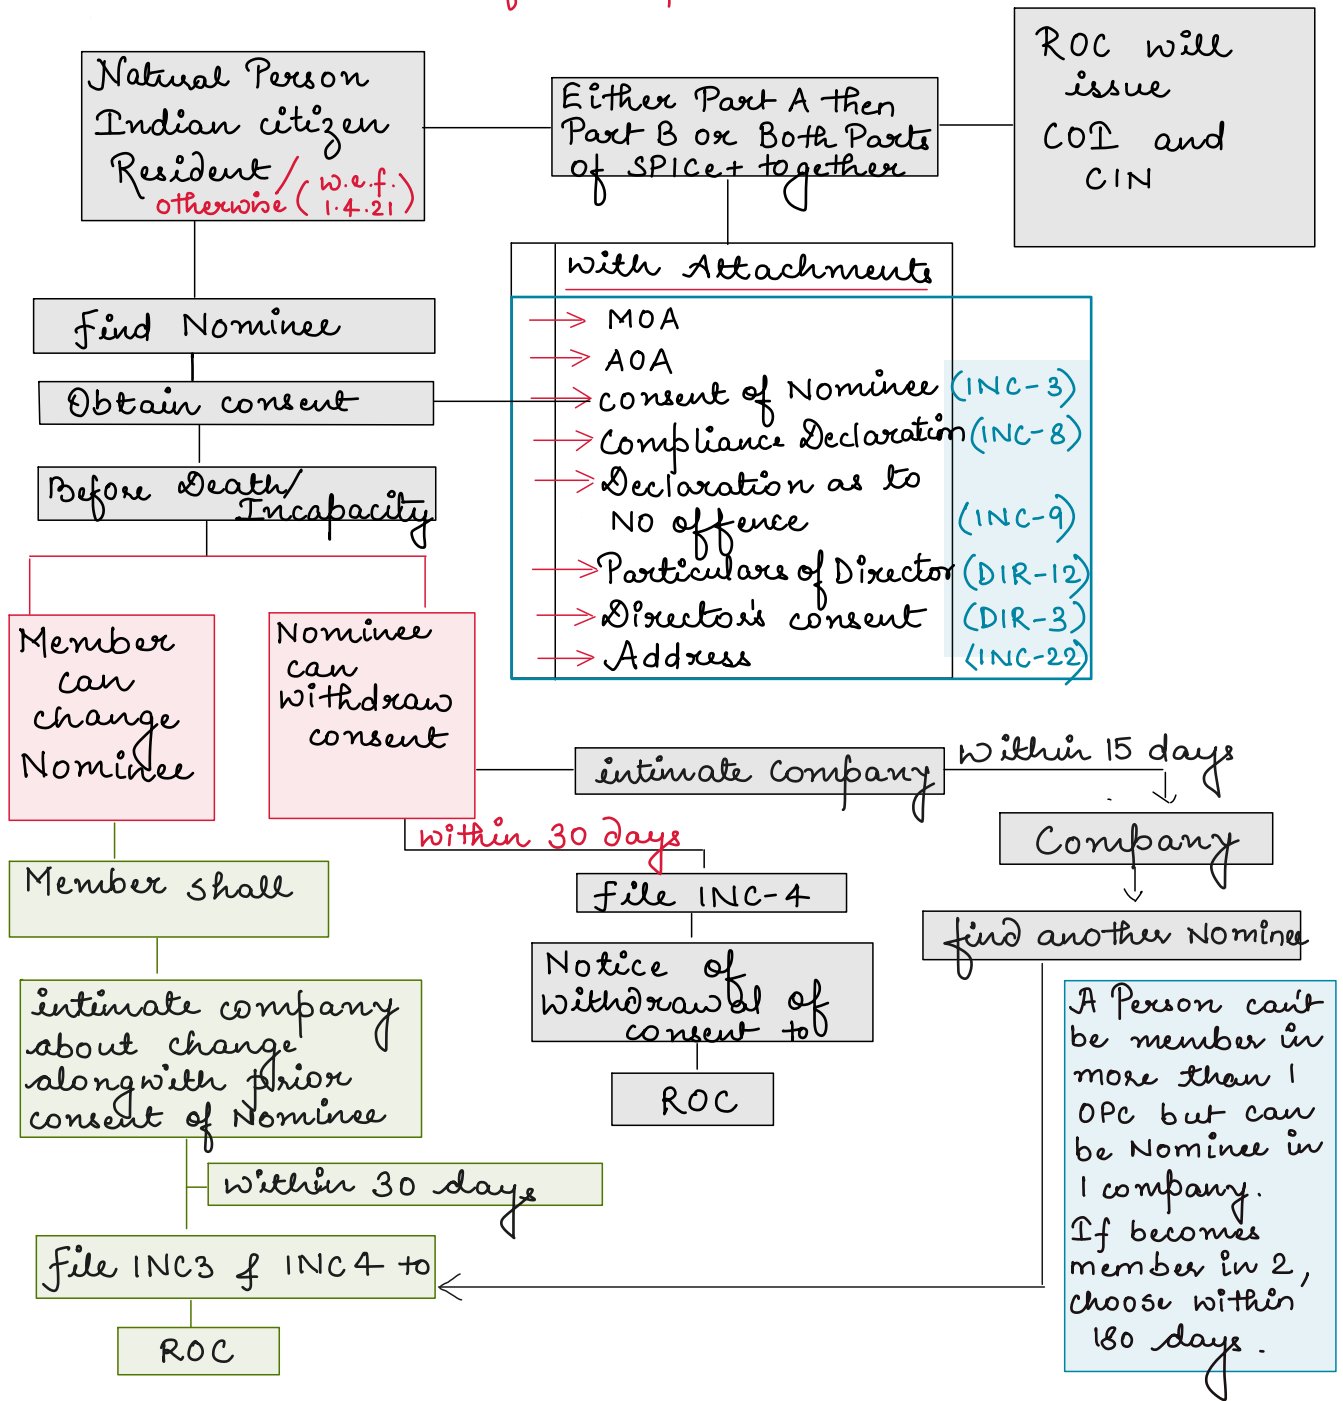 Natural Person
Indian citizen
Resident/
otherwise (w.e.f.
1.4.21)
Either Part A then
Part B or Both Parts
of SPICe+ together
ROC will
issue
COI and
CIN
with Attachments
find Nominee
Obtain consent
Before Death/
Incapacity
→ MOA
→ AOA
→ consent of Nominee (INC-3)
→ Compliance Declaration (INC-8)
→ Declaration as to
NO offence (INC-9)
→ Particulars of Director (DIR-12)
→ Director's consent (DIR-3)
→ Address (INC-22)
Member
can
change
Nominee
Nominee
can
withdraw
consent
intimate Company
within 15 days
Company
find another Nominee
within 30 days
file INC-4
Notice of
withdrawal of
consent to
ROC
Member shall
intimate company
about change
alongwith prior
consent of Nominee
within 30 days
file INC3 & INC4 to
ROC
A Person can't
be member in
more than 1
OPC but can
be Nominee in
1 company.
If becomes
member in 2,
choose within
180 days.